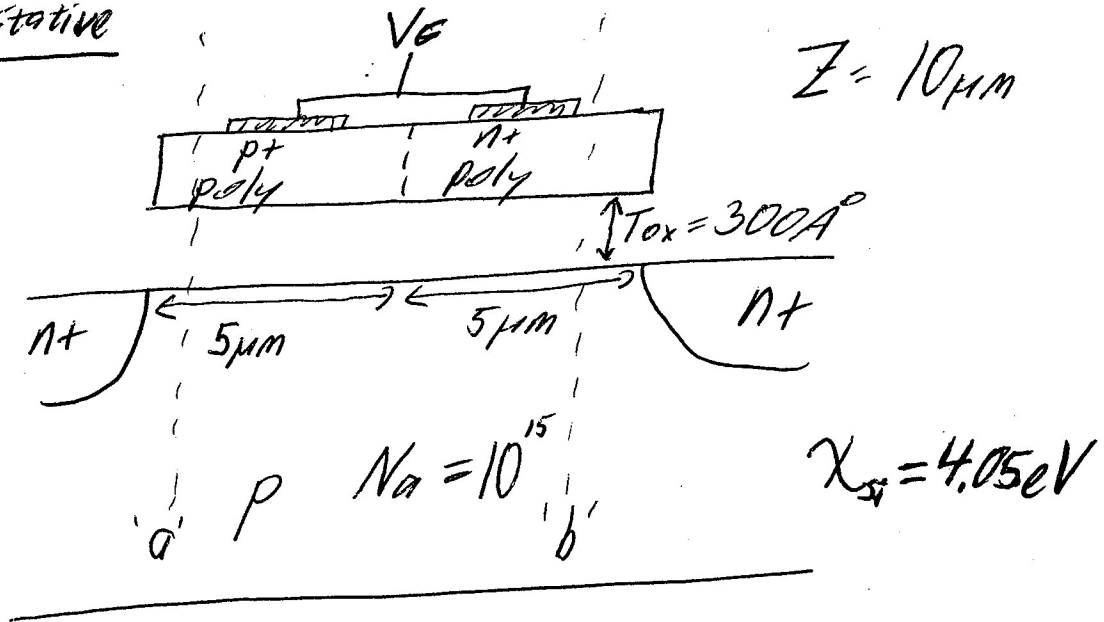 VG
Z = 10μm
p+
poly
n+
poly
Tox = 300A°
n+
5μm
5μm
n+
p
Na = 10¹⁵
χsi = 4.05eV
'a'
'b'